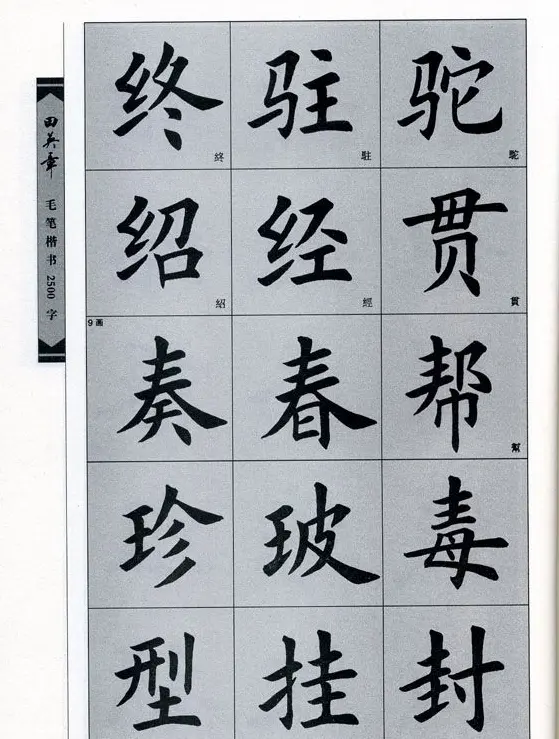 田英章
毛笔楷书2500字
终 驻 驼
終 駐 駝
绍 经 贯
紹 經 貫
9画
奏 春 帮
幫
珍 玻 毒
型 挂 封